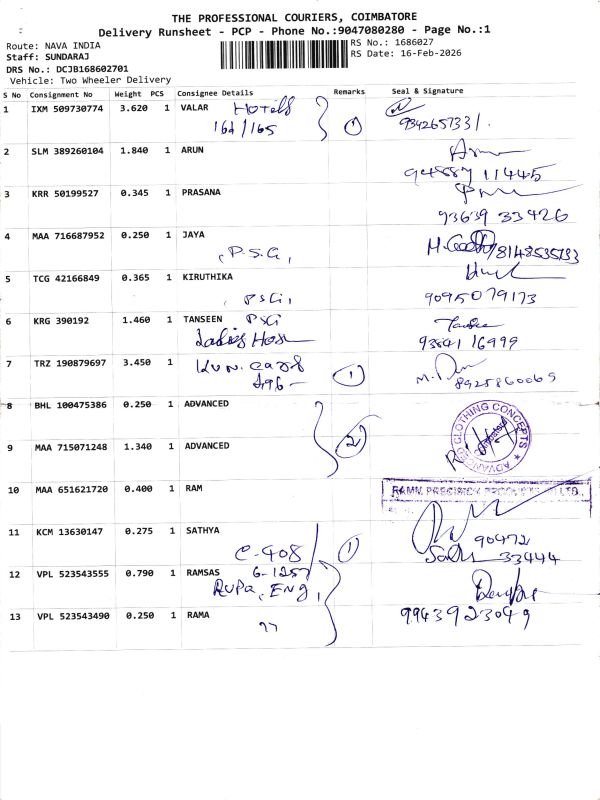 THE PROFESSIONAL COURIERS, COIMBATORE
Delivery Runsheet - PCP - Phone No.:9047080280 - Page No.:1
Route: NAVA INDIA
RS No.: 1686027
Staff: SUNDARAJ
RS Date: 16-Feb-2026
DRS No.: DCJB168602701
Vehicle: Two Wheeler Delivery
S No Consignment No Weight PCS Consignee Details Remarks Seal & Signature
1 IXM 509730774 3.620 1 VALAR Hotels
164/165 1 934265733/.
2 SLM 389260104 1.840 1 ARUN
94887 11445
3 KRR 50199527 0.345 1 PRASANA
93639 33426
4 MAA 716687952 0.250 1 JAYA
P.S.G, 8148535733
5 TCG 42166849 0.365 1 KIRUTHIKA
PSG, 9095079173
6 KRG 390192 1.460 1 TANSEEN PSG
Ladies Hos 93841 16999
7 TRZ 190879697 3.450 1
496- 1 8925860069
8 BHL 100475386 0.250 1 ADVANCED
2
ADVANCED CLOTHING CONCEPTS
Coimbatore
9 MAA 715071248 1.340 1 ADVANCED
10 MAA 651621720 0.400 1 RAM
RAMM PRECISION
11 KCM 13630147 0.275 1 SATHYA
C-408 1 90472
33444
12 VPL 523543555 0.790 1 RAMSAS G-1257
Rupa, Eng,
13 VPL 523543490 0.250 1 RAMA
9943923049